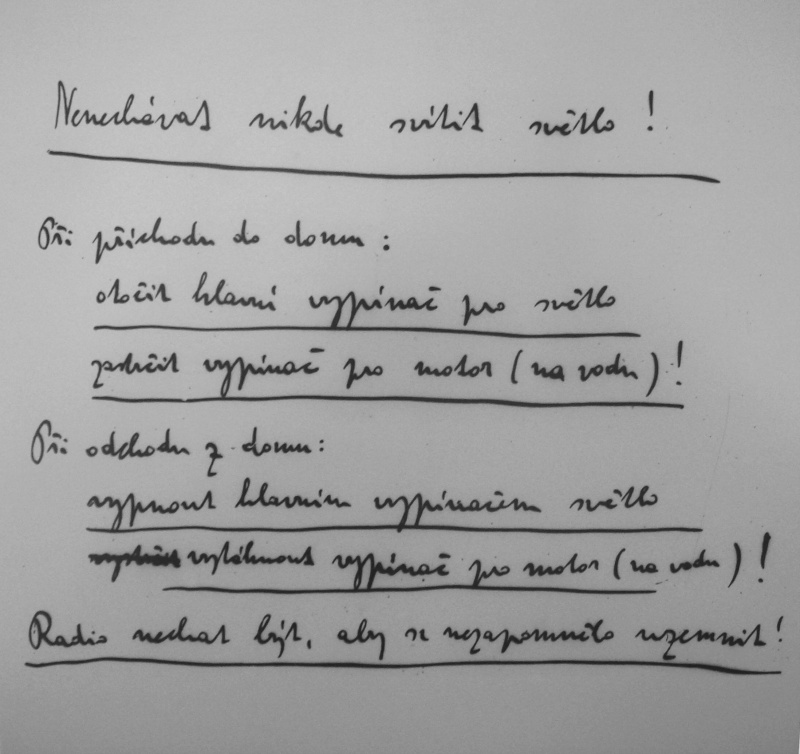 Nenechávat nikde svítit světlo !
Při příchodu do domu :
otočit hlavní vypínač pro světlo
zastrčit vypínač pro motor ( na vodu ) !
Při odchodu z domu :
vypnout hlavním vypínačem světlo
vytáhnout vypínač pro motor ( na vodu ) !
Radio nechat být, aby se nezapomnělo uzemnit !